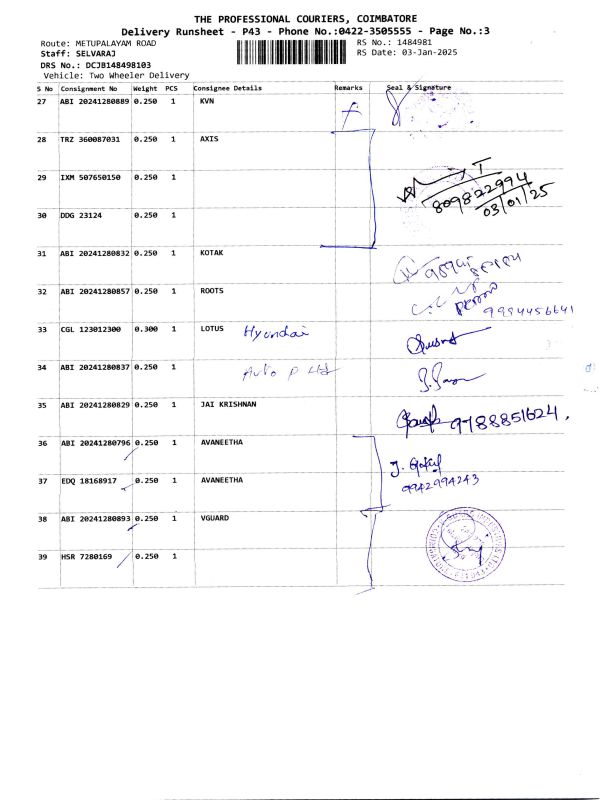 THE PROFESSIONAL COURIERS, COIMBATORE
Delivery Runsheet - P43 - Phone No.:0422-3505555 - Page No.:3
Route: METUPALAYAM ROAD
RS No.: 1484981
Staff: SELVARAJ
RS Date: 03-Jan-2025
DRS No.: DCJB148498103
Vehicle: Two Wheeler Delivery
S No Consignment No Weight PCS Consignee Details Remarks Seal & Signature
27 ABI 20241280889 0.250 1 KVN
28 TRZ 360087031 0.250 1 AXIS
29 IXM 507650150 0.250 1
809822994
03/01/25
30 DDG 23124 0.250 1
31 ABI 20241280832 0.250 1 KOTAK
32 ABI 20241280857 0.250 1 ROOTS
9994456641
33 CGL 123012300 0.300 1 LOTUS Hyundai
34 ABI 20241280837 0.250 1 Auto P Ltd
35 ABI 20241280829 0.250 1 JAI KRISHNAN
9788851624.
36 ABI 20241280796 0.250 1 AVANEETHA
J. Gokul
37 EDQ 18168917 0.250 1 AVANEETHA
9942994243
38 ABI 20241280893 0.250 1 VGUARD
39 HSR 7280169 0.250 1